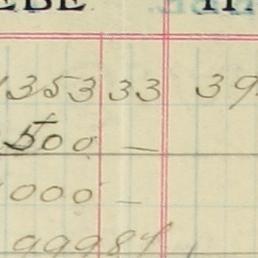 EBE
1353 33 39
500 —
000 —
99984